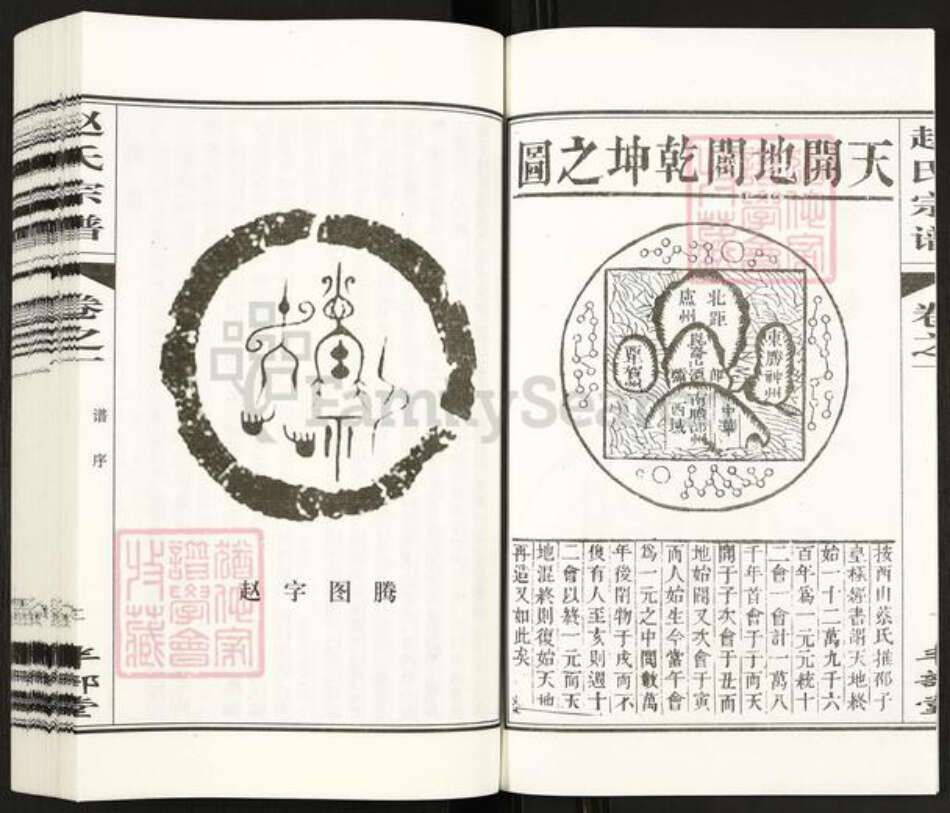 天開地闢乾坤之圖
北距
盧州
東勝神州
西域
按西山蔡氏推邵子
皇極經書謂天地終
始一十二萬九千六
百年為一元元統十
二會一會計一萬八
千年首會于子而天
開于子次會于丑而
地始闢又次會于寅
而人始生今當午會
爲一元之中間數萬
年後閉物于戌而不
復有人至亥則週十
二會以終一元而天
地混終則復始天地
再造又如此矣
赵氏宗谱
卷之一
赵氏宗譜
卷之一
谱序
赵字图腾
譜學會
收藏
FamilySearch